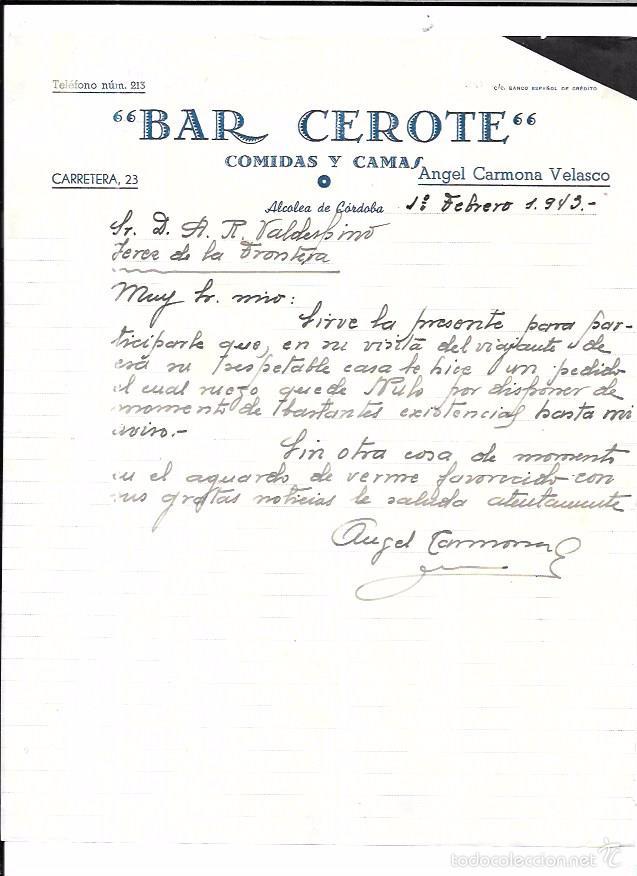 Teléfono núm. 213
C/C. BANCO ESPAÑOL DE CRÉDITO
“BAR CEROTE“
COMIDAS Y CAMAS
CARRETERA, 23
Angel Carmona Velasco
Alcolea de Córdoba 1º Febrero 1.943.-
Sr. D. A. R. Valdespino
Jerez de la Frontera
Muy Sr. mio:
Sirve la presente para par-
ticiparle que, en su visita del viajante de
esa su respetable casa le hice un pedido
el cual ruego quede Nulo por disponer de
momento de bastantes existencias hasta mi
aviso.-
Sin otra cosa de momento
en el aguardo de verme favorecido con
sus gratas noticias le saluda atentamente
Angel Carmona
todocoleccion.net